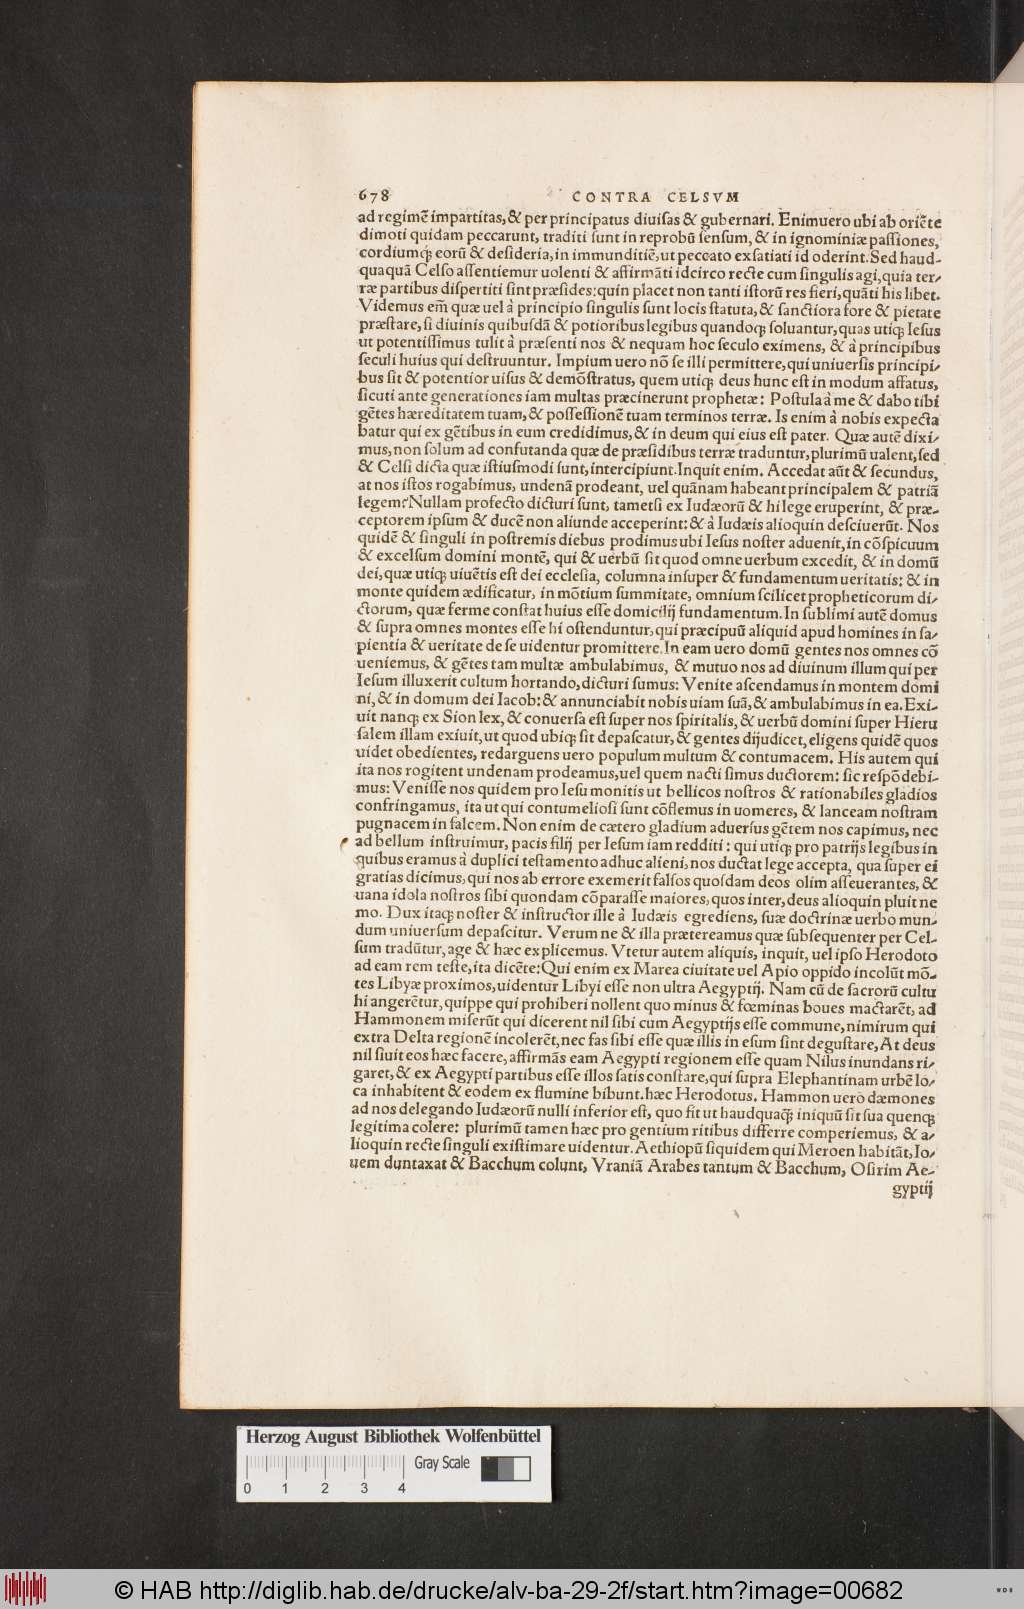 678 CONTRA CELSVM
ad regimẽ impartitas, & per principatus diuisas & gubernari. Enimuero ubi ab oriẽte
dimoti quidam peccarunt, traditi sunt in reprobũ sensum, & in ignominiæ passiones,
cordiumq́; eorũ & desideria, in immunditiẽ, ut peccato exsatiati id oderint. Sed haud-
quaquã Celso assentiemur uolenti & affirmãti idcirco recte cum singulis agi, quia ter-
ræ partibus dispertiti sint præsides: quin placet non tanti istorũ res fieri, quãti his libet.
Videmus em̃ quæ uel à principio singulis sunt locis statuta, & sanctiora fore & pietate
præstare, si diuinis quibusdã & potioribus legibus quandoq; soluantur, quas utiq; Iesus
ut potentissimus tulit à præsenti nos & nequam hoc seculo eximens, & à principibus
seculi huius qui destruuntur. Impium uero nõ se illi permittere, qui uniuersis principi-
bus sit & potentior uisus & demõstratus, quem utiq; deus hunc est in modum affatus,
sicuti ante generationes iam multas præcinerunt prophetæ: Postula à me & dabo tibi
gẽtes hæreditatem tuam, & possessionẽ tuam terminos terræ. Is enim à nobis expecta
batur qui ex gẽtibus in eum credidimus, & in deum qui eius est pater. Quæ autẽ dixi-
mus, non solum ad confutanda quæ de præsidibus terræ traduntur, plurimũ ualent, sed
& Celsi dicta quæ istiusmodi sunt, intercipiunt. Inquit enim. Accedat aũt & secundus,
at nos istos rogabimus, undenã prodeant, uel quãnam habeant principalem & patriã
legem? Nullam profecto dicturi sunt, tametsi ex Iudæorũ & hi lege eruperint, & præ-
ceptorem ipsum & ducẽ non aliunde acceperint: & à Iudæis alioquin desciuerũt. Nos
quidẽ & singuli in postremis diebus prodimus ubi Iesus noster aduenit, in cõspicuum
& excelsum domini montẽ, qui & uerbũ sit quod omne uerbum excedit, & in domũ
dei, quæ utiq; uiuẽtis est dei ecclesia, columna insuper & fundamentum ueritatis: & in
monte quidem ædificatur, in mõtium summitate, omnium scilicet propheticorum di-
ctorum, quæ ferme constat huius esse domicilij fundamentum. In sublimi autẽ domus
& supra omnes montes esse hi ostenduntur, qui præcipuũ aliquid apud homines in sa-
pientia & ueritate de se uidentur promittere. In eam uero domũ gentes nos omnes cõ
ueniemus, & gẽtes tam multæ ambulabimus, & mutuo nos ad diuinum illum qui per
Iesum illuxerit cultum hortando, dicturi sumus: Venite ascendamus in montem domi
ni, & in domum dei Iacob: & annunciabit nobis uiam suã, & ambulabimus in ea. Exi-
uit nanq; ex Sion lex, & conuersa est super nos spiritalis, & uerbũ domini super Hieru
salem illam exiuit, ut quod ubiq; sit depascatur, & gentes dijudicet, eligens quidẽ quos
uidet obedientes, redarguens uero populum multum & contumacem. His autem qui
ita nos rogitent undenam prodeamus, uel quem nacti simus ductorem: sic respõdebi-
mus: Venisse nos quidem pro Iesu monitis ut bellicos nostros & rationabiles gladios
confringamus, ita ut qui contumeliosi sunt cõflemus in uomeres, & lanceam nostram
pugnacem in falcem. Non enim de cætero gladium aduersus gẽtem nos capimus, nec
ad bellum instruimur, pacis filij per Iesum iam redditi: qui utiq; pro patrijs legibus in
quibus eramus à duplici testamento adhuc alieni, nos ductat lege accepta, qua super ei
gratias dicimus, qui nos ab errore exemerit falsos quosdam deos olim asseuerantes, &
uana idola nostros sibi quondam cõparasse maiores, quos inter, deus alioquin pluit ne
mo. Dux itaq; noster & instructor ille à Iudæis egrediens, suæ doctrinæ uerbo mun-
dum uniuersum depascitur. Verum ne & illa prætereamus quæ subsequenter per Cel-
sum tradũtur, age & hæc explicemus. Vtetur autem aliquis, inquit, uel ipso Herodoto
ad eam rem teste, ita dicẽte: Qui enim ex Marea ciuitate uel Apio oppido incolũt mõ-
tes Libyæ proximos, uidentur Libyi esse non ultra Aegyptij. Nam cũ de sacrorũ cultu
hi angerẽtur, quippe qui prohiberi nollent quo minus & fœminas boues mactarẽt, ad
Hammonem miserũt qui dicerent nil sibi cum Aegyptijs esse commune, nimirum qui
extra Delta regionẽ incolerẽt, nec fas sibi esse quæ illis in esum sint degustare, At deus
nil siuit eos hæc facere, affirmãs eam Aegypti regionem esse quam Nilus inundans ri-
garet, & ex Aegypti partibus esse illos satis constare, qui supra Elephantinam urbẽ lo-
ca inhabitent & eodem ex flumine bibunt. hæc Herodotus. Hammon uero dæmones
ad nos delegando Iudæorũ nulli inferior est, quo fit ut haudquaq̃; iniquũ sit sua quenq;
legitima colere: plurimũ tamen hæc pro gentium ritibus differre comperiemus, & a-
lioquin recte singuli existimare uidentur. Aethiopũ siquidem qui Meroen habitãt, Io-
uem duntaxat & Bacchum colunt, Vraniã Arabes tantum & Bacchum, Osirim Ae-
gyptij
Herzog August Bibliothek Wolfenbüttel
Gray Scale
0 1 2 3 4
© HAB http://diglib.hab.de/drucke/alv-ba-29-2f/start.htm?image=00682